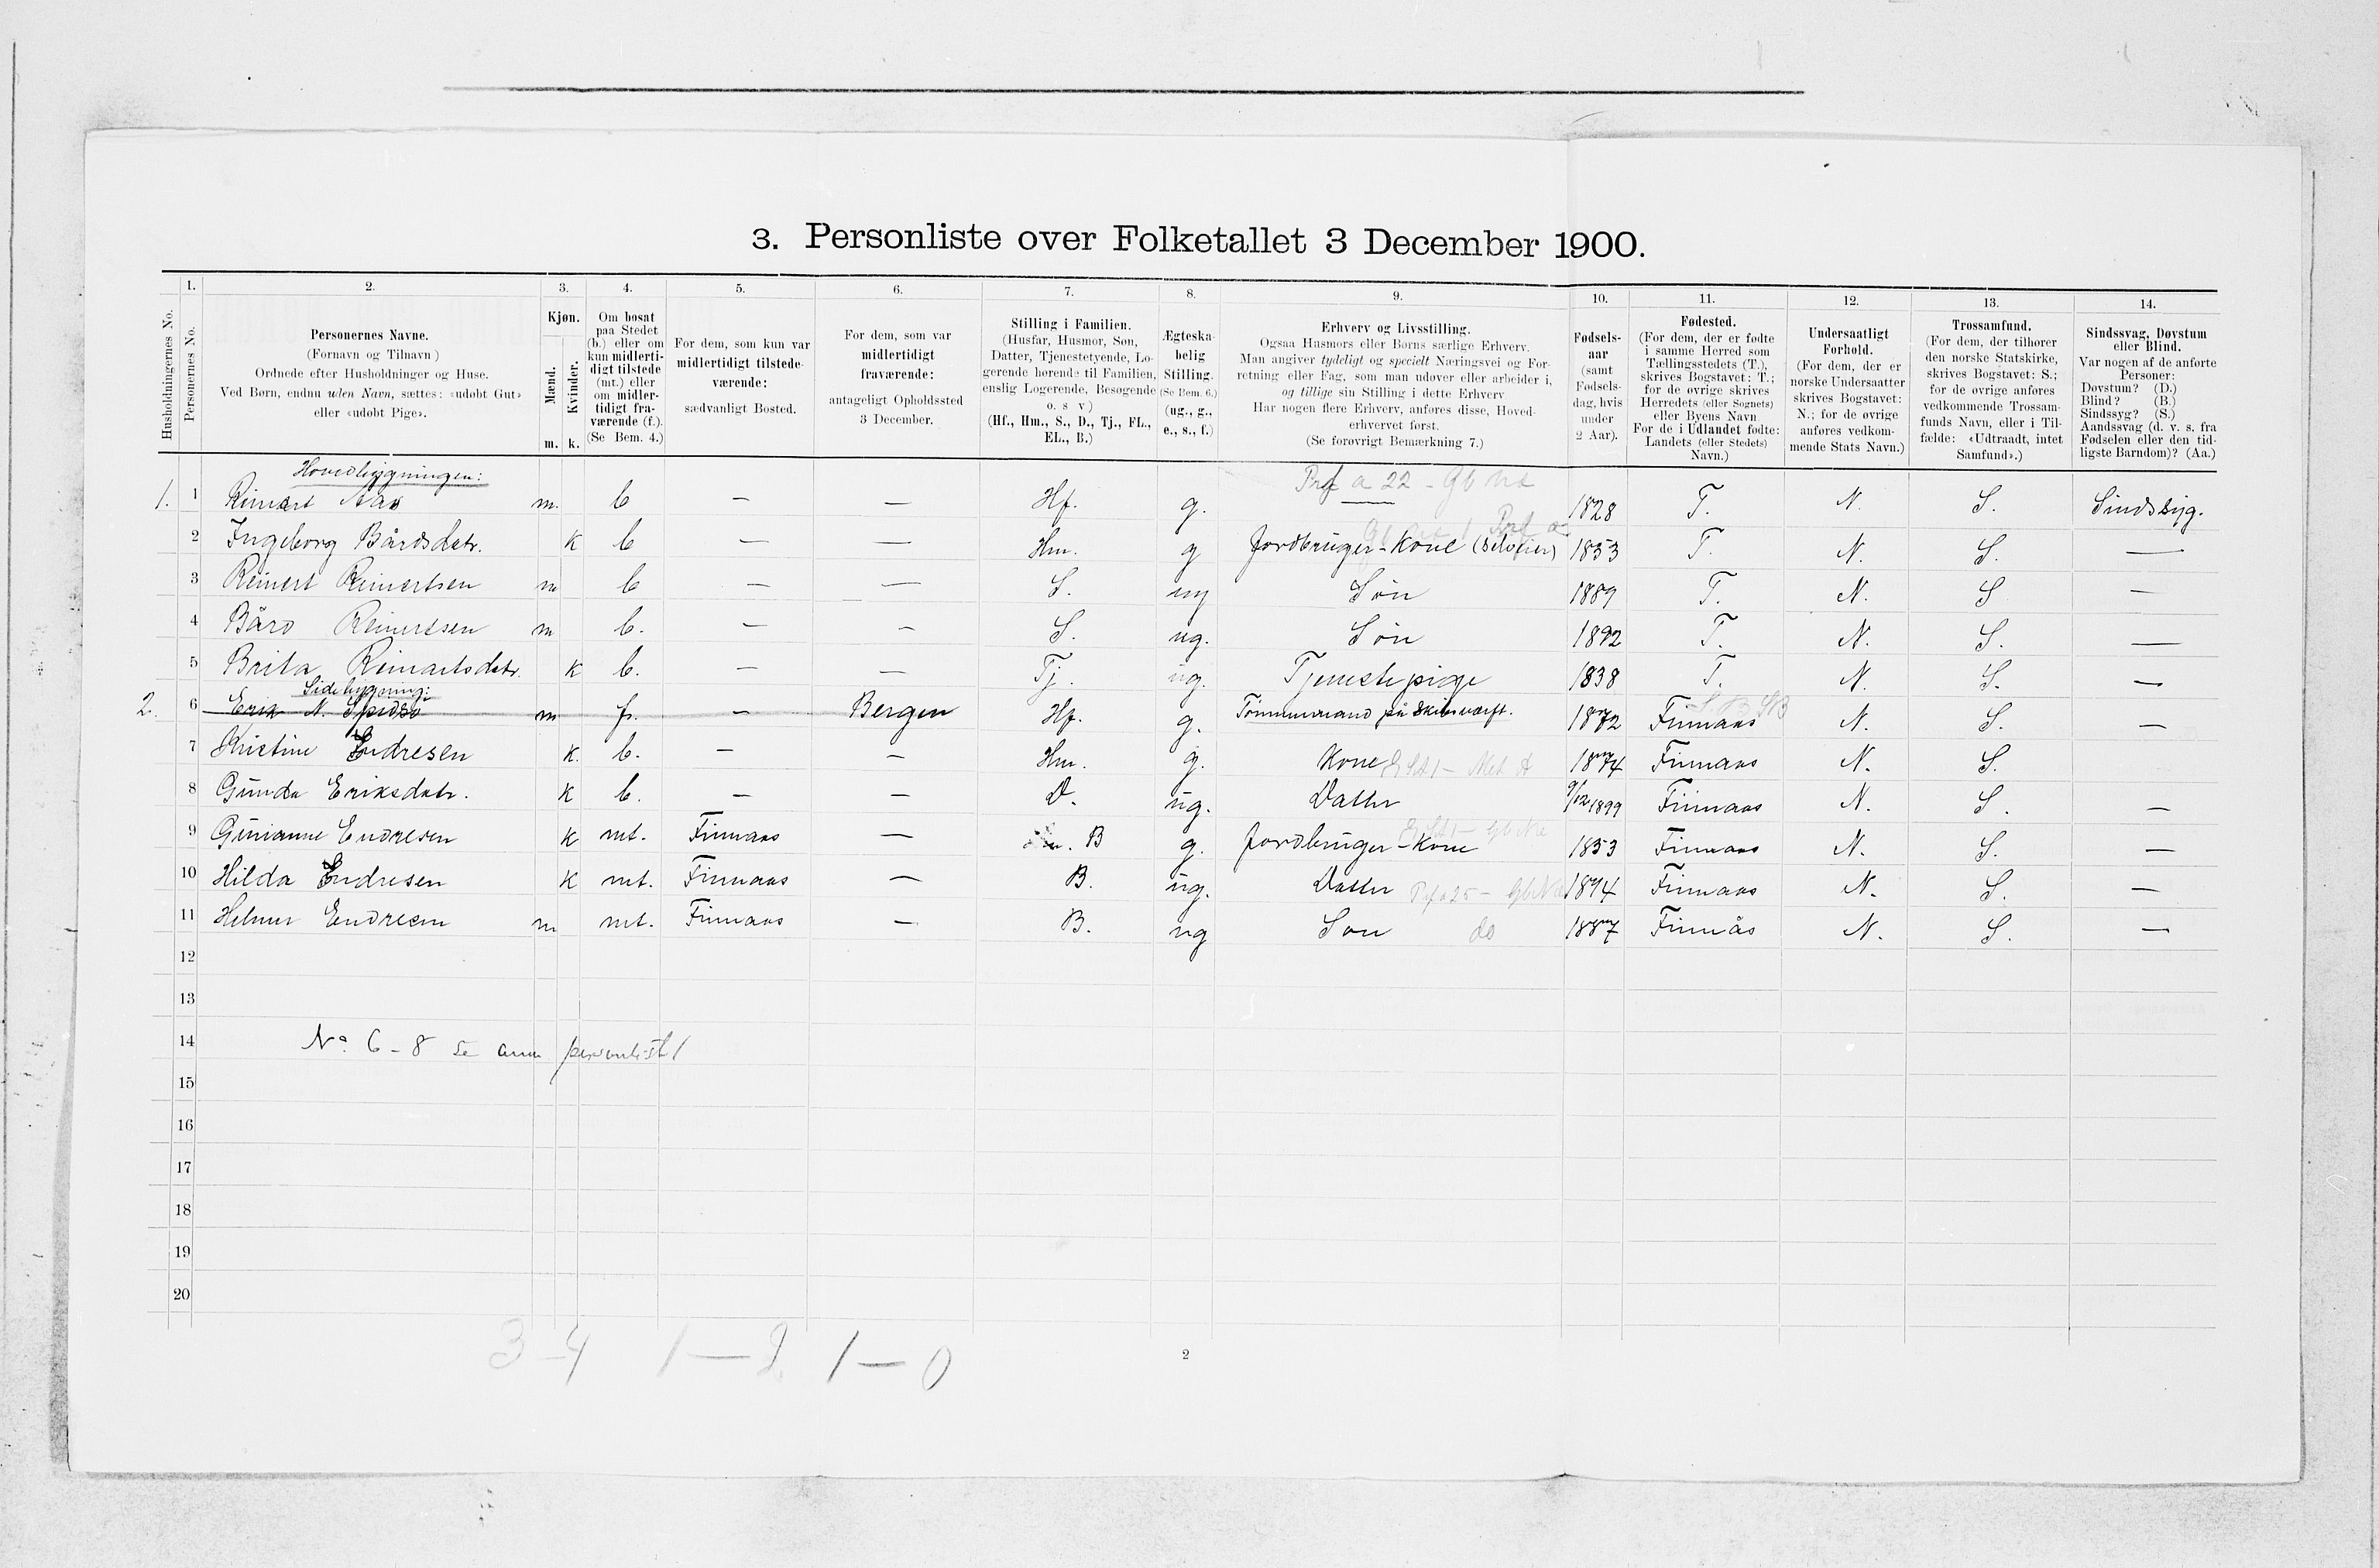 3. Personliste over Folketallet 3 December 1900.
1. 2. 3. 4. 5. 6. 7. 8. 9. 10. 11. 12. 13. 14.
Husholdningernes No.
Personernes No.
Personernes Navne.
(Fornavn og Tilnavn)
Ordnede efter Husholdninger og Huse.
Ved Børn, endnu uden Navn, sættes: «udøbt Gut»
eller «udøbt Pige».
Kjøn.
Mænd.
Kvinder.
m. k.
Om bosat
paa Stedet
(b.) eller om
kun midlerti-
digt tilstede
(mt.) eller
om midler-
tidigt fra-
værende (f.).
(Se Bem. 4.)
For dem, som kun var
midlertidigt tilstede-
værende:
sædvanligt Bosted.
For dem, som var
midlertidigt
fraværende:
antageligt Opholdssted
3 December.
Stilling i Familien.
(Husfar, Husmor, Søn,
Datter, Tjenestetyende, Lo-
gerende hørende til Familien,
enslig Logerende, Besøgende
o. s v)
(Hf., Hm., S., D., Tj., FL.,
EL., B.)
Ægteska-
belig
Stilling.
(Se Bem. 6.)
(ug., g.,
e., s., f.)
Erhverv og Livsstilling.
Ogsaa Husmors eller Børns særlige Erhverv.
Man angiver tydeligt og specielt Næringsvei og For-
retning eller Fag, som man udøver eller arbeider i,
og tillige sin Stilling i dette Erhverv
Har nogen flere Erhverv, anføres disse, Hoved-
erhvervet først.
(Se forøvrigt Bemærkning 7.)
Fødsels-
aar
(samt
Fødsels-
dag, hvis
under
2 Aar).
Fødested.
(For dem, der er fødte
i samme Herred som
Tællingsstedets (T.),
skrives Bogstavet: T.;
for de øvrige skrives
Herredets (eller Sognets)
eller Byens Navn
For de i Udlandet fødte:
Landets (eller Stedets)
Navn.)
Undersaatligt
Forhold.
(For dem, der er
norske Undersaatter
skrives Bogstavet:
N.; for de øvrige
anføres vedkom-
mende Stats Navn.)
Trossamfund.
(For dem, der tilhører
den norske Statskirke,
skrives Bogstavet: S.;
for de øvrige anføres
vedkommende Trossam-
funds Navn, eller i Til-
fælde: «Udtraadt, intet
Samfund».)
Sindssvag, Døvstum
eller Blind.
Var nogen af de anførte
Personer:
Døvstum? (D.)
Blind? (B.)
Sindssyg? (S.)
Aandssvag (d. v. s. fra
Fødselen eller den tid-
ligste Barndom)? (Aa.)
Hovedbygningen:
Prf a 22 - Gb
1. 1 Reinert Aas m. b — — Hf. g. — 1828 T. N. S. Sindssyg.
2 Ingeborg Bårdsdatr. k b — — Hm. g Jordbruger-Kone (Selveier) 1853 T. N. S. —
3 Reinert Reinertsen m b — — S. ug Søn 1889 T. N. S —
4 Bård Reinertsen m b. — — S. ug. Søn 1892 T. N. S. —
5 Brita Reinartsdatr. k b. — — Tj. ug. Tjenestepige 1838 T. N. S. —
Sidebygning:
2. 6 Erik N. Spidsø m f. — Bergen Hf. g. Tømmermand på Skibsværft. 1872 Finnaas N. S. —
7 Kristine Endresen k. b. — — Hm. g. Kone 1874 Finnaas N. S.
8 Gunda Eriksdatr. k b. — — D. ug. Datter 9/12 1899 Finnaas N. S. —
9 Gurianne Endresen k mt. Finnaas — B g. Jordbruger-Kone 1853 Finnaas N. S. —
10 Hilda Endresen k mt. Finnaas — B. ug. Datter 1894 Finnaas N. S. —
11 Helmer Endresen m mt. Finnaas — B. ug Søn do 1887 Finnås N. S. —
12
13
14 No. 6-8 se personliste 1
15
16
17
18
19
20
3-4 1-2 1-0
2